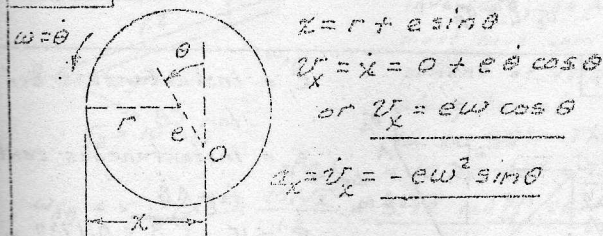 ω=θ̇
θ
r
e
O
x
x = r + e sinθ
v_x = ẋ = 0 + e θ̇ cosθ
or v_x = eω cosθ
a_x = v̇_x = -eω² sinθ